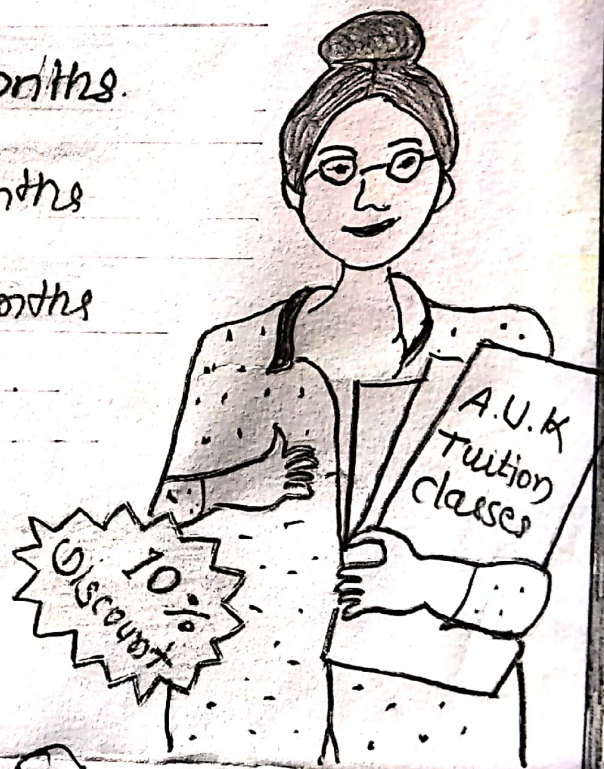 months.
months
months
A.U.K
Tuition
classes
10%
Discount